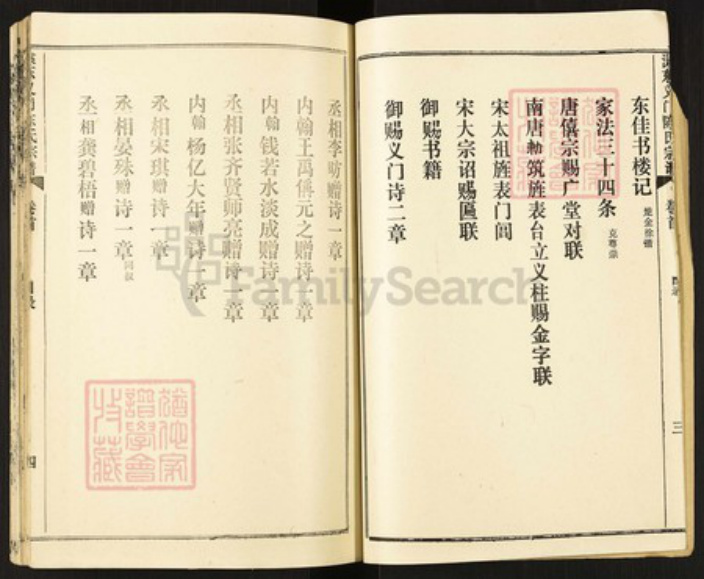 东佳书楼记
家法三十四条 克尊崇
唐僖宗赐广堂对联
南唐勅筑旌表台立义柱赐金字联
宋太祖旌表门闾
宋大宗诏赐匾联
御赐书籍
御赐义门诗二章
三
丞相李昉赠诗一章
内翰王禹偁元之赠诗一章
内翰钱若水淡成赠诗一章
丞相张齐贤师亮赠诗一章
内翰杨亿大年赠诗一章
丞相宋琪赠诗一章
丞相晏殊赠诗一章 同叔
丞相龚碧梧赠诗一章
卷首
目录
四
FamilySearch